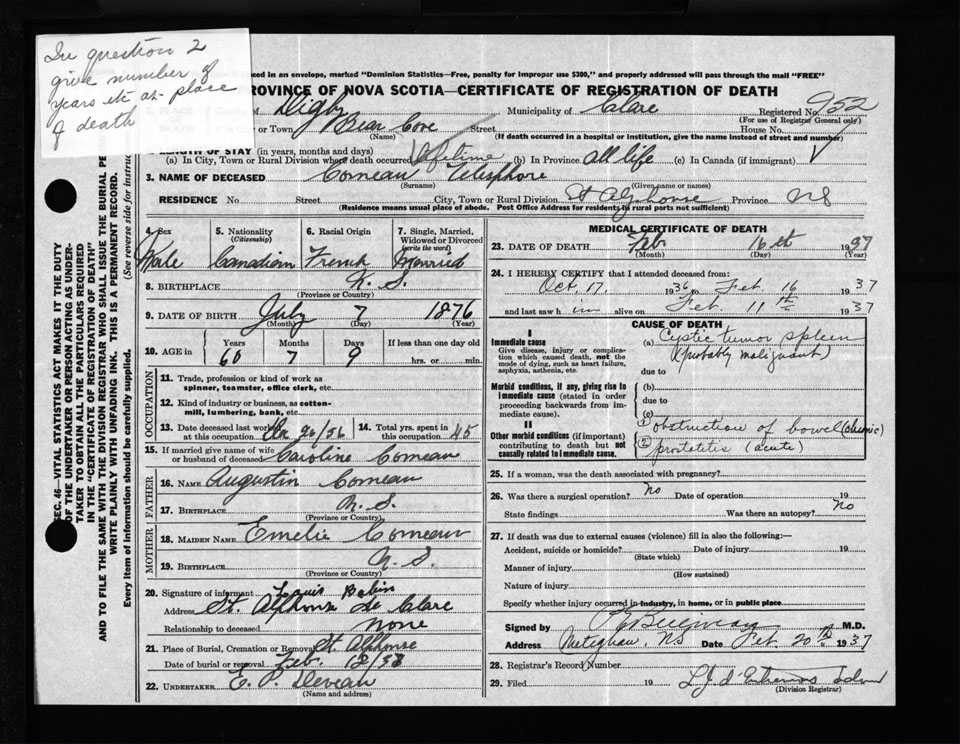 In question 2
give number of
years etc at place
of death
ced in an envelope, marked "Dominion Statistics—Free, penalty for improper use $300," and properly addressed will pass through the mail "FREE"
ROVINCE OF NOVA SCOTIA—CERTIFICATE OF REGISTRATION OF DEATH
of Digby Municipality of Clare Registered No. 952
(For use of Registrar General only)
City or Town Bear Cove Street House No.
(Name) (If death occurred in a hospital or institution, give the name instead of street and number)
LENGTH OF STAY (in years, months and days)
(a) In City, Town or Rural Division where death occurred lifetime (b) In Province all life (c) In Canada (if immigrant)
3. NAME OF DECEASED Comeau Telesphore
(Surname) (Given name or names)
RESIDENCE No Street City, Town or Rural Division St Alphonse Province NS
(Residence means usual place of abode. Post Office Address for residents of rural parts not sufficient)
SEC. 46—VITAL STATISTICS ACT MAKES IT THE DUTY
OF THE UNDERTAKER OR PERSON ACTING AS UNDER-
TAKER TO OBTAIN ALL THE PARTICULARS REQUIRED
IN THE "CERTIFICATE OF REGISTRATION OF DEATH"
AND TO FILE THE SAME WITH THE DIVISION REGISTRAR WHO SHALL ISSUE THE BURIAL PE
WRITE PLAINLY WITH UNFADING INK. THIS IS A PERMANENT RECORD.
Every item of information should be carefully supplied. (See reverse side for instruc
4. Sex 5. Nationality 6. Racial Origin 7. Single, Married,
(Citizenship) Widowed or Divorced
(write the word)
Male Canadian French Married
8. BIRTHPLACE N.S.
(Province or Country)
9. DATE OF BIRTH July 7 1876
(Month) (Day) (Year)
10. AGE in Years Months Days If less than one day old
60 7 9 hrs. or min.
OCCUPATION
11. Trade, profession or kind of work as
spinner, teamster, office clerk, etc.
12. Kind of industry or business, as cotton-
mill, lumbering, bank, etc.
13. Date deceased last worked 14. Total yrs. spent in
at this occupation 26/36 this occupation 45
15. If married give name of wife
or husband of deceased Caroline Comeau
FATHER
16. NAME Augustin Comeau
17. BIRTHPLACE N.S.
(Province or Country)
MOTHER
18. MAIDEN NAME Emelie Comeau
19. BIRTHPLACE N.S.
(Province or Country)
20. Signature of informant Louis Babin
Address St. Alphonse de Clare
Relationship to deceased none
21. Place of Burial, Cremation or Removal St. Alphonse
Date of burial or removal Feb. 18/37
22. UNDERTAKER E. P. Deveau
(Name and address)
MEDICAL CERTIFICATE OF DEATH
23. DATE OF DEATH Feb 16th 1937
(Month) (Day) (Year)
24. I HEREBY CERTIFY that I attended deceased from:
Oct. 17. 1936 to Feb. 16 1937
and last saw h im alive on Feb. 11th 1937
CAUSE OF DEATH
I
Immediate cause (a) Cystic tumor spleen
Give disease, injury or complica-
tion which caused death, not the (probably malignant)
mode of dying, such as heart failure,
asphyxia, asthenia, etc. due to
Morbid conditions, if any, giving rise to (b)
immediate cause (stated in order due to
proceeding backwards from im-
mediate cause). (c)
II
Other morbid conditions (if important) 1 obstruction of bowel (chronic)
contributing to death but not
causally related to immediate cause. 2 prostatitis (acute)
25. If a woman, was the death associated with pregnancy?
26. Was there a surgical operation? No Date of operation 19
State findings Was there an autopsy? No
27. If death was due to external causes (violence) fill in also the following:—
Accident, suicide or homicide? Date of injury 19
(State which)
Manner of injury
(How sustained)
Nature of injury
Specify whether injury occurred in industry, in home, or in public place
Signed by M.D.
Address Meteghan, N.S. Date Feb. 20th 1937
28. Registrar's Record Number
29. Filed 19 L.J. d'Entremont
(Division Registrar)